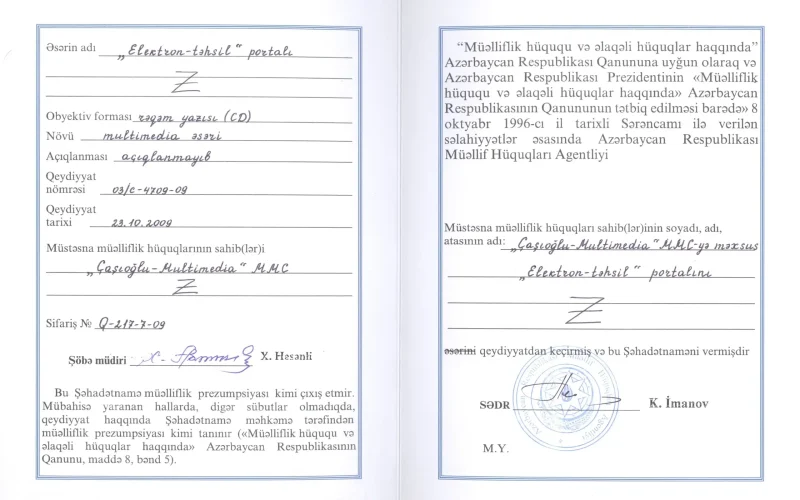 Əsərin adı „Elektron-təhsil“ portalı
Z
Obyektiv forması rəqəm yazısı (CD)
Növü multimedia əsəri
Açıqlanması açıqlanmayıb
Qeydiyyat
nömrəsi 03/C-4709-09
Qeydiyyat
tarixi 23.10.2009
Müstəsna müəlliflik hüquqlarının sahib(lər)i
„Çaşıoğlu-Multimedia“ MMC
Z
Sifariş № Q-217-7-09
Şöbə müdiri X. Hesənli
Bu Şəhadətnamə müəlliflik prezumpsiyası kimi çıxış etmir.
Mübahisə yaranan hallarda, digər sübutlar olmadıqda,
qeydiyyat haqqında Şəhadətnamə məhkəmə tərəfindən
müəlliflik prezumpsiyası kimi tanınır («Müəlliflik hüququ və
əlaqəli hüquqlar haqqında» Azərbaycan Respublikasının
Qanunu, maddə 8, bənd 5).
“Müəlliflik hüququ və əlaqəli hüquqlar haqqında”
Azərbaycan Respublikası Qanununa uyğun olaraq və
Azərbaycan Respublikası Prezidentinin «Müəlliflik
hüququ və əlaqəli hüquqlar haqqında» Azərbaycan
Respublikasının Qanununun tətbiq edilməsi barədə» 8
oktyabr 1996-cı il tarixli Sərəncamı ilə verilən
səlahiyyətlər əsasında Azərbaycan Respublikası
Müəllif Hüquqları Agentliyi
Müstəsna müəlliflik hüquqları sahib(lər)inin soyadı, adı,
atasının adı: „Çaşıoğlu-Multimedia“ MMC-yə məxsus
„Elektron-təhsil“ portalını
Z
əsərini qeydiyyatdan keçirmiş və bu Şəhadətnaməni vermişdir
SƏDR K. İmanov
M.Y.